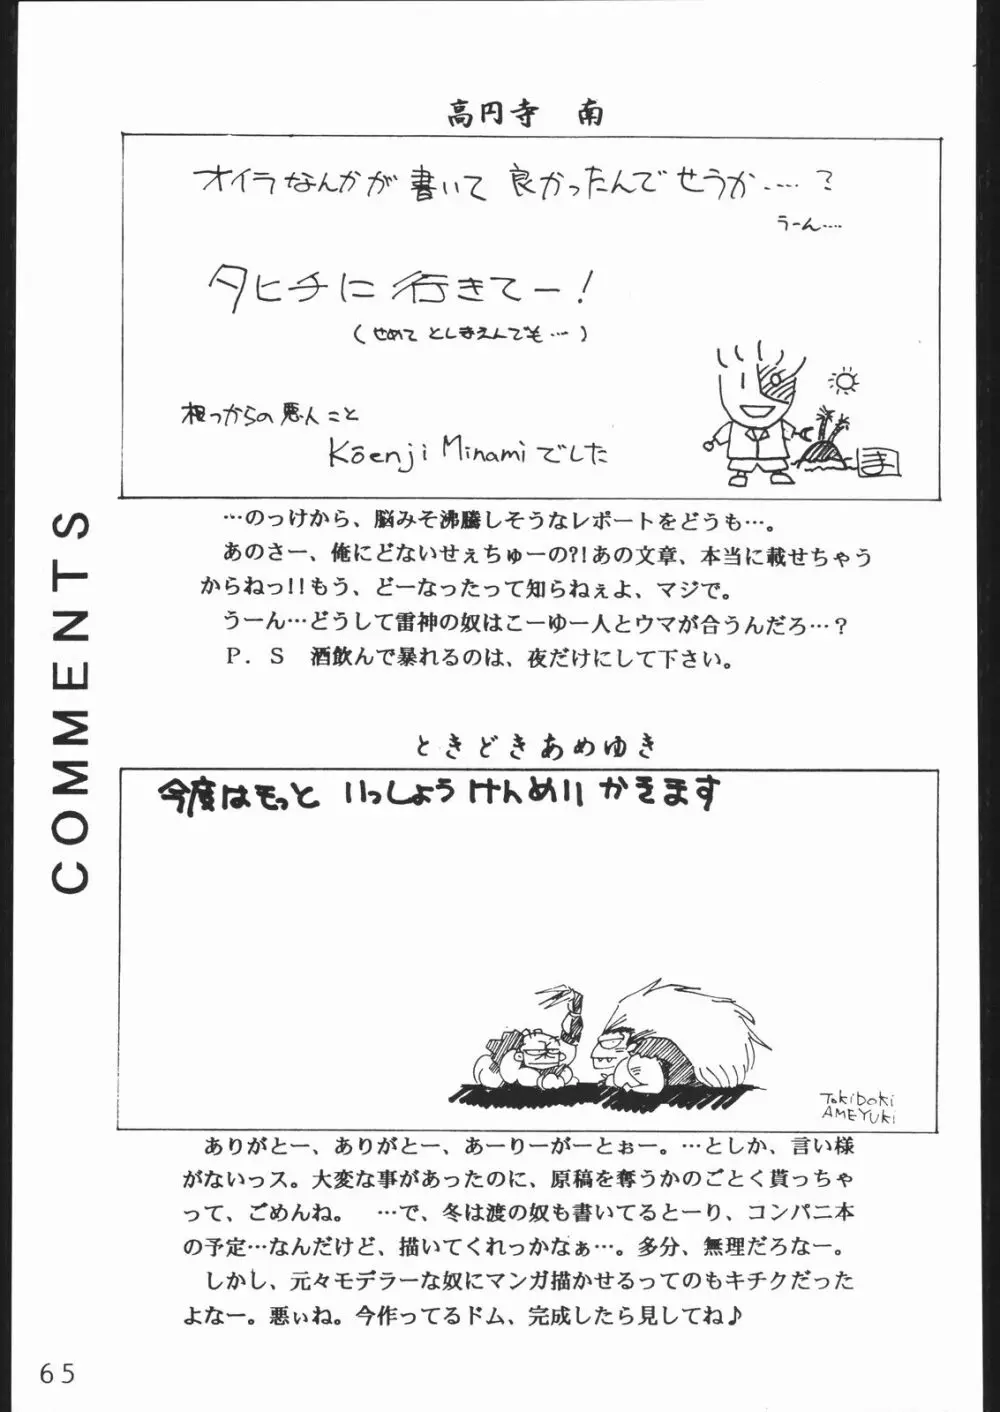 高円寺　南
オイラなんかが書いて良かったんでせうか……？
うーん……
タヒチに行きてー！
（せめて としまえんでも…）
根っからの悪人こと
Kōenji Minamiでした
ま
…のっけから、脳みそ沸騰しそうなレポートをどうも…。
あのさー、俺にどないせぇちゅーの?!あの文章、本当に載せちゃう
からねっ!!もう、どーなったって知らねぇよ、マジで。
うーん…どうして雷神の奴はこーゆー人とウマが合うんだろ…？
Ｐ．Ｓ　酒飲んで暴れるのは、夜だけにして下さい。
COMMENTS
ときどきあめゆき
今度はもっと いっしょうけんめい かきます
TokiDoki
AMEYUKi
ありがとー、ありがとー、あーりーがーとぉー。…としか、言い様
がないっス。大変な事があったのに、原稿を奪うかのごとく貰っちゃ
って、ごめんね。　…で、冬は渡の奴も書いてるとーり、コンパニ本
の予定…なんだけど、描いてくれっかなぁ…。多分、無理だろなー。
しかし、元々モデラーな奴にマンガ描かせるってのもキチクだった
よなー。悪ぃね。今作ってるドム、完成したら見してね♪
65